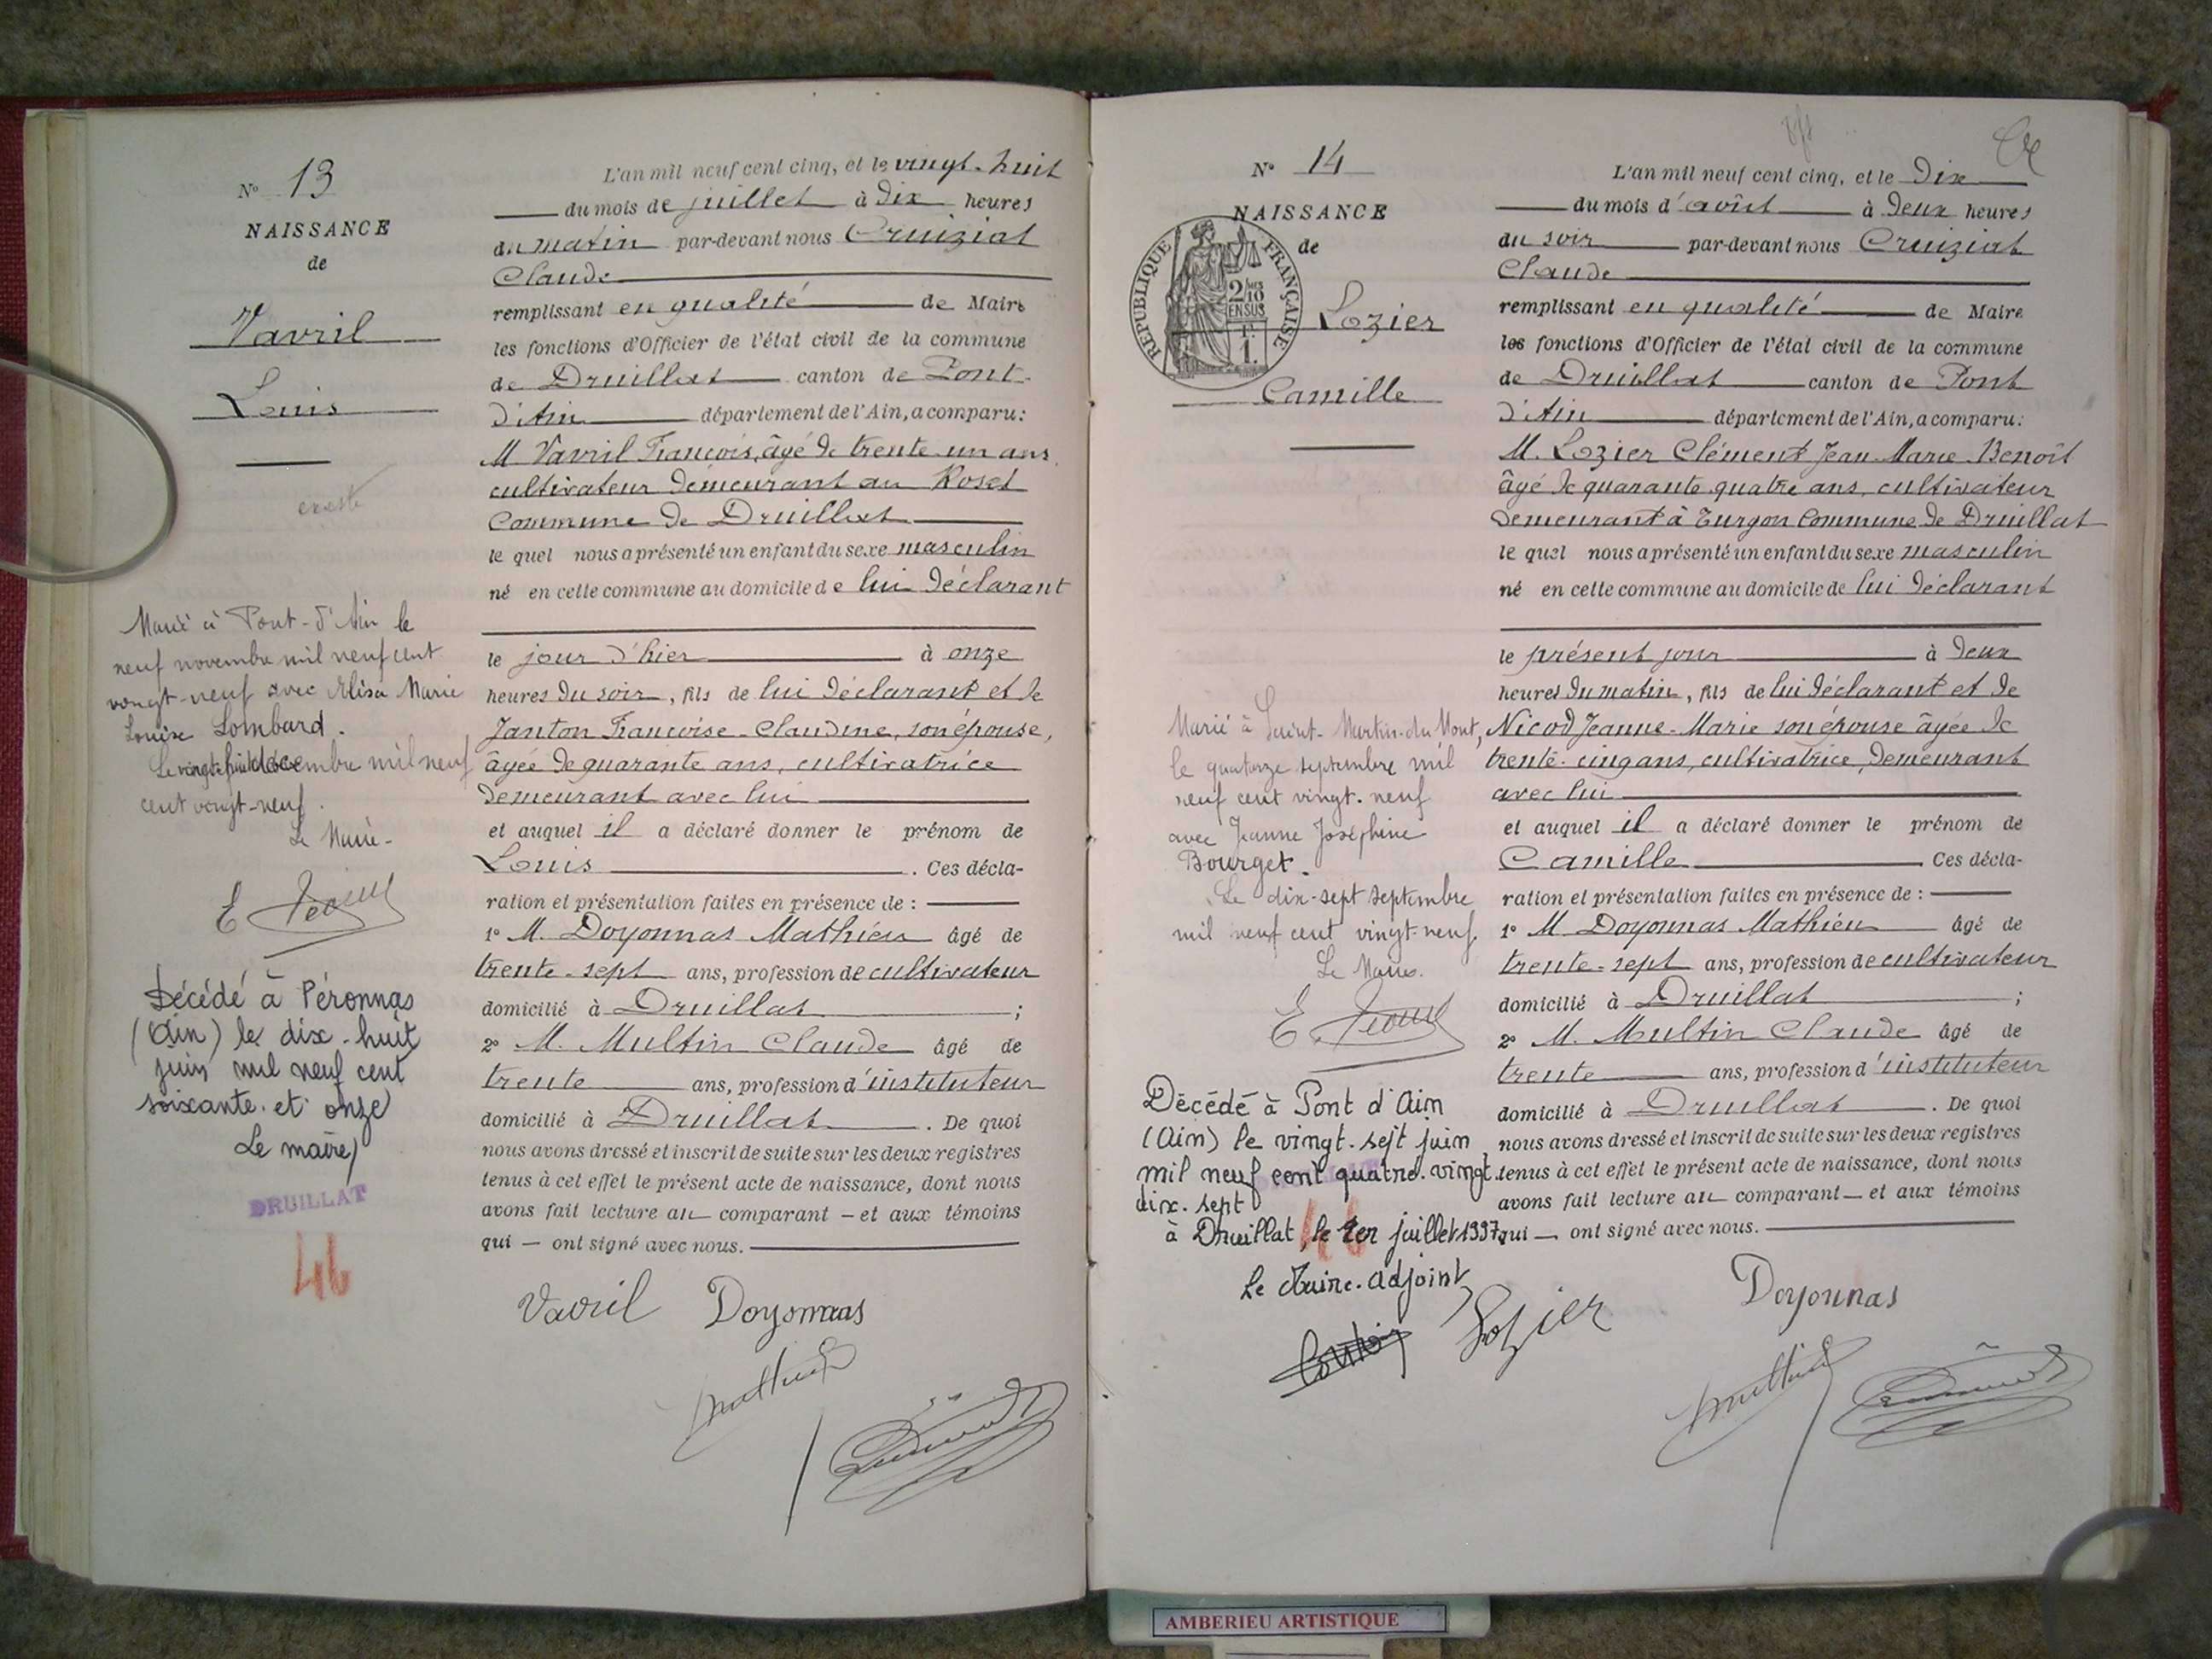 N° 13
NAISSANCE
de
Vavril
Louis
Marié à Pont-d'Ain le
neuf novembre mil neuf cent
vingt-neuf avec Elisa Marie
Louise Lombard.
Le vingt-huit décembre mil neuf
cent vingt-neuf.
Le Maire
Décédé à Péronnas
(Ain) le dix-huit
juin mil neuf cent
soixante et onze
Le maire
DRUILLAT
46
L'an mil neuf cent cinq, et le vingt-huit
du mois de juillet à dix heures
du matin par-devant nous Cruiziat
Claude
remplissant en qualité de Maire
les fonctions d'Officier de l'état civil de la commune
de Druillat canton de Pont-
d'Ain département de l'Ain, a comparu:
M. Vavril François, âgé de trente un ans,
cultivateur demeurant au Roset
commune de Druillat
le quel nous a présenté un enfant du sexe masculin
né en cette commune au domicile de lui déclarant
le jour d'hier à onze
heures du soir, fils de lui déclarant et de
Janton Françoise-Claudine, son épouse,
âgée de quarante ans, cultivatrice
demeurant avec lui
et auquel il a déclaré donner le prénom de
Louis. Ces décla-
ration et présentation faites en présence de :
1° M. Doyonnas Mathieu âgé de
trente-sept ans, profession de cultivateur
domicilié à Druillat ;
2° M. Multin Claude âgé de
trente ans, profession d'instituteur
domicilié à Druillat. De quoi
nous avons dressé et inscrit de suite sur les deux registres
tenus à cet effet le présent acte de naissance, dont nous
avons fait lecture au comparant — et aux témoins
qui — ont signé avec nous.
Vavril Doyonnas
Multin
N° 14
NAISSANCE
de
REPUBLIQUE FRANÇAISE
2/10
EN SUS
1.
Lozier
Camille
Marié à Saint-Martin-du-Mont,
le quatorze septembre mil
neuf cent vingt-neuf
avec Jeanne Joséphine
Bourget.
Le dix-sept septembre
mil neuf cent vingt-neuf.
Le Maire.
Décédé à Pont d'Ain
(Ain) le vingt-sept juin
mil neuf cent quatre-vingt
dix-sept
à Druillat, le 1er juillet 1997
Le Maire-adjoint
L'an mil neuf cent cinq, et le dix
du mois d'août à deux heures
du soir par-devant nous Cruiziat
Claude
remplissant en qualité de Maire
les fonctions d'Officier de l'état civil de la commune
de Druillat canton de Pont
d'Ain département de l'Ain, a comparu:
M. Lozier Clément Jean-Marie Benoît
âgé de quarante-quatre ans, cultivateur
demeurant à Turgon commune de Druillat
le quel nous a présenté un enfant du sexe masculin
né en cette commune au domicile de lui déclarant
le présent jour à deux
heures du matin, fils de lui déclarant et de
Nicod Jeanne-Marie son épouse âgée de
trente-cinq ans, cultivatrice, demeurant
avec lui
et auquel il a déclaré donner le prénom de
Camille Ces décla-
ration et présentation faites en présence de :
1° M Doyonnas Mathieu âgé de
trente-sept ans, profession de cultivateur
domicilié à Druillat ;
2° M. Multin Claude âgé de
trente ans, profession d'instituteur
domicilié à Druillat. De quoi
nous avons dressé et inscrit de suite sur les deux registres
tenus à cet effet le présent acte de naissance, dont nous
avons fait lecture au comparant — et aux témoins
qui — ont signé avec nous.
Lozier Doyonnas
Multin
AMBERIEU ARTISTIQUE